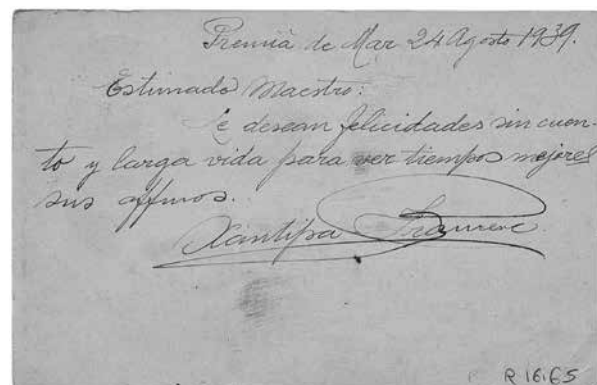 Premiá de Mar 24 Agosto 1939.
Estimado Maestro:
Le desean felicidades sin cuen-
to y larga vida para ver tiempos mejores
sus affmos.
Xantipa
R 16.65